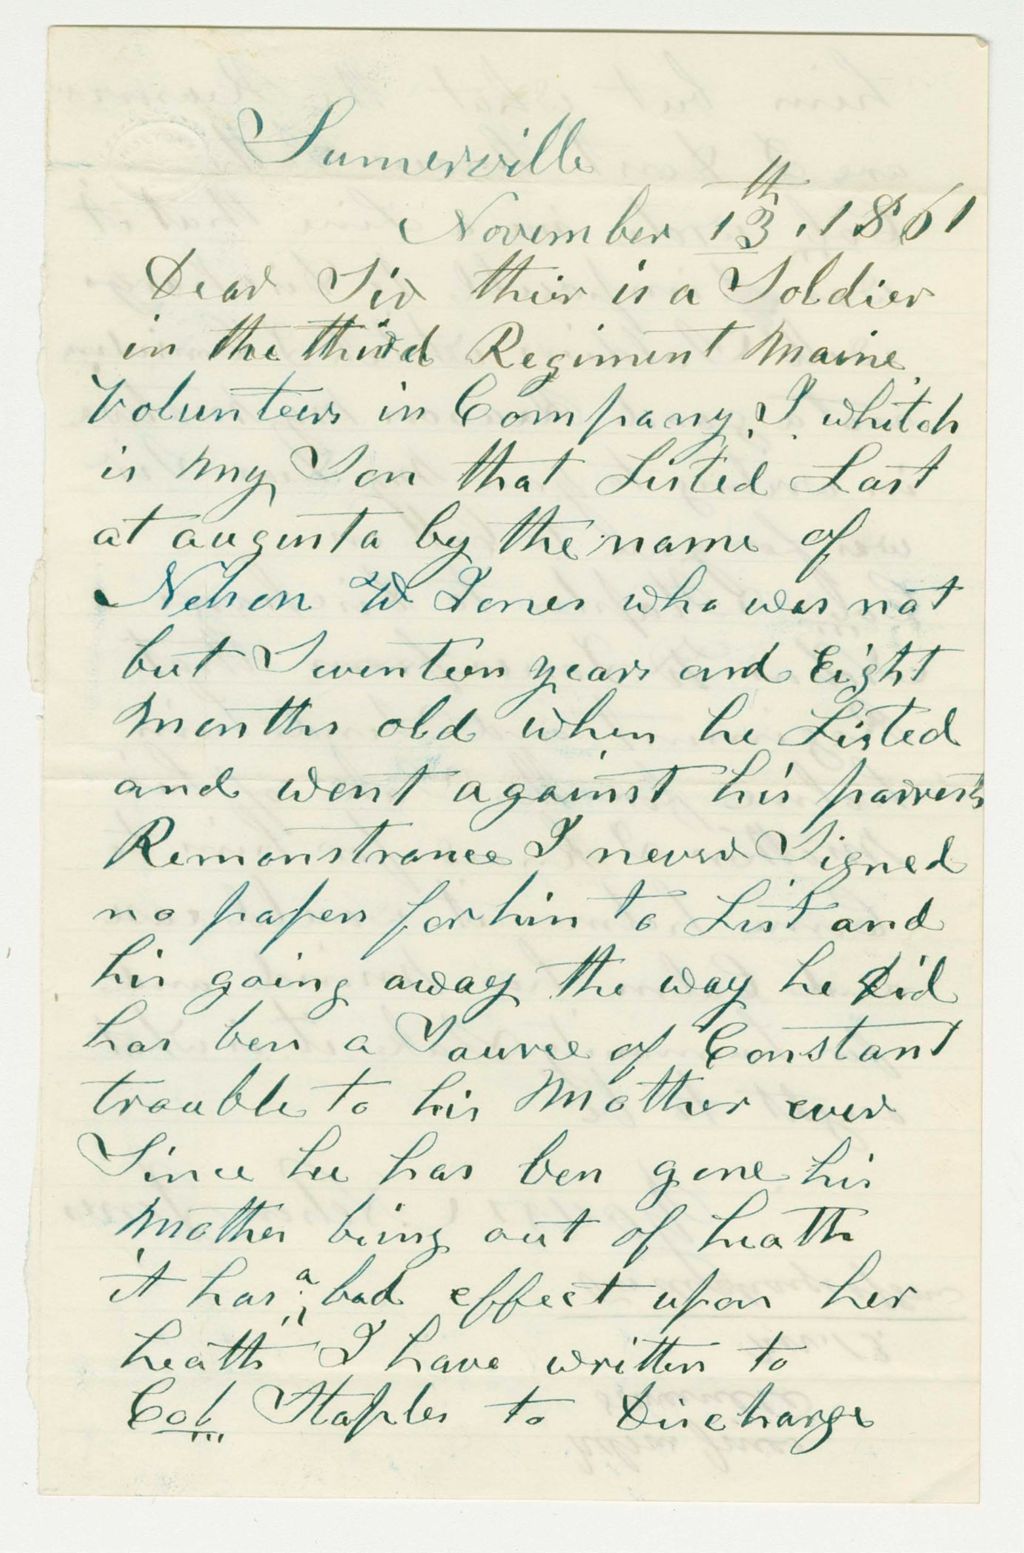 Sumerville
November 13th, 1861
Dear Sir thier is a Soldier
in the third Regiment Maine
Volunteers in Company, I, whitch
is my Son that Listed Last
at augusta by the name of
Nelson W Jones who was not
but Seventeen years and Eight
Months old when he Listed
and went against his parrents
Remonstrance I never Signed
no papers for him to List and
his going away the way he Did
has ben a Source of Constant
trouble to his Mother ever
Since he has ben gone his
Mother being out of heath
it has a bad effect upon her
heath I have written to
Col Staples to Discharge